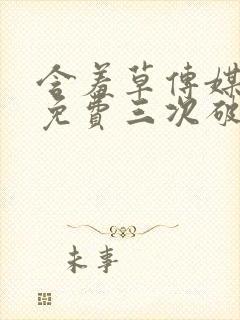 含羞草传媒
免費三次破
未事